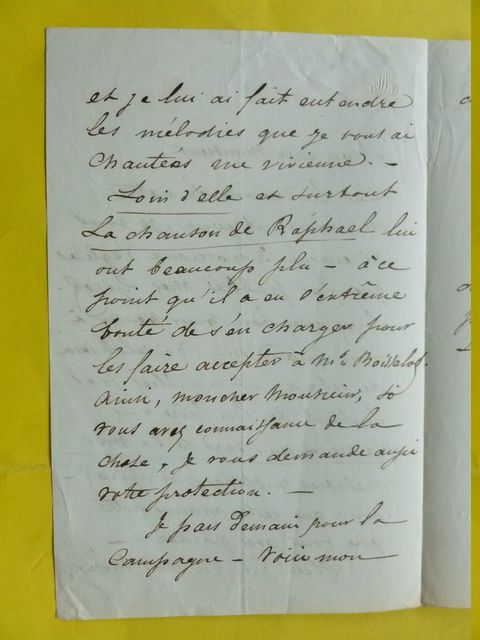 et je lui ai fait entendre
les mélodies que je vous ai
chantées rue vivienne. –
Loin d'elle et surtout
La chanson de Raphael lui
ont beaucoup plu – à ce
point qu'il a eu l'extrême
bonté de s'en charger pour
les faire accepter à Mr Boisselot.
Ainsi, mon cher Monsieur, si
vous avez connaissance de la
chose, je vous demande aussi
votre protection. –
Je pars demain pour la
Campagne – voici mon